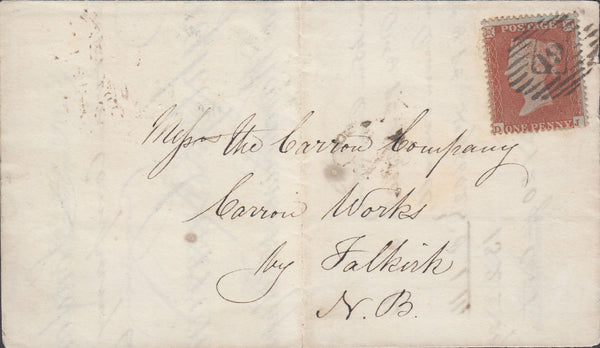 POSTAGE
49
D ONE PENNY I
Messrs the Carron Company
Carron Works
by Falkirk
N.B.